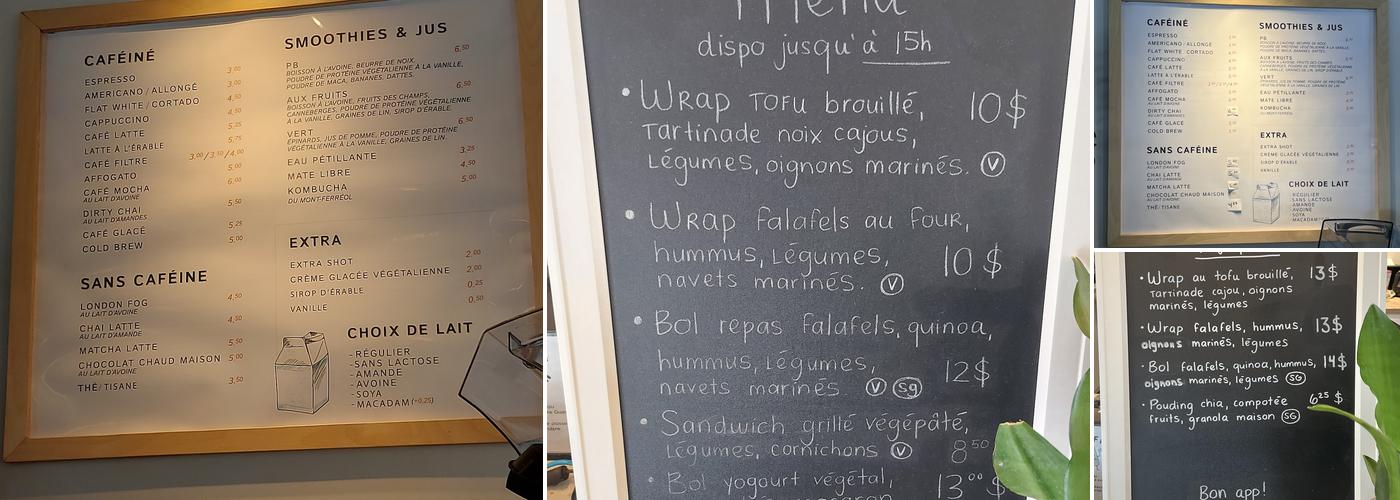 CAFÉINÉ
ESPRESSO 3,00
AMERICANO/ALLONGÉ 3,00
FLAT WHITE/CORTADO 4,50
CAPPUCCINO 4,50
CAFÉ LATTE 5,25
LATTE À L'ÉRABLE 5,75
CAFÉ FILTRE 3,00/3,50/4,00
AFFOGATO 6,00
CAFÉ MOCHA 5,00
AU LAIT D'AVOINE
DIRTY CHAI 5,50
AU LAIT D'AMANDES
CAFÉ GLACÉ 5,00
COLD BREW 5,00
SANS CAFÉINE
LONDON FOG 4,50
AU LAIT D'AVOINE
CHAI LATTE 4,50
AU LAIT D'AMANDE
MATCHA LATTE 5,50
CHOCOLAT CHAUD MAISON 5,00
AU LAIT D'AVOINE
THÉ/TISANE 3,50
SMOOTHIES & JUS
PB 6,50
BOISSON À L'AVOINE, BEURRE DE NOIX,
POUDRE DE PROTÉINE VÉGÉTALIENNE À LA VANILLE,
POUDRE DE MACA, BANANES, DATTES.
AUX FRUITS 6,50
BOISSON À L'AVOINE, FRUITS DES CHAMPS,
CANNEBERGES, POUDRE DE PROTÉINE VÉGÉTALIENNE
À LA VANILLE, GRAINES DE LIN, SIROP D'ÉRABLE.
VERT 6,50
ÉPINARDS, JUS DE POMME, POUDRE DE PROTÉINE
VÉGÉTALIENNE À LA VANILLE, GRAINES DE LIN
EAU PÉTILLANTE 3,25
MATE LIBRE 4,50
KOMBUCHA 5,00
DU MONT-FERRÉOL
EXTRA
EXTRA SHOT 2,00
CRÈME GLACÉE VÉGÉTALIENNE 2,00
SIROP D'ÉRABLE 0,25
VANILLE 0,50
CHOIX DE LAIT
-RÉGULIER
-SANS LACTOSE
-AMANDE
-AVOINE
-SOYA
-MACADAM (+0,25)
Menu
dispo jusqu'à 15h
• Wrap Tofu brouillé, 10$
Tartinade noix cajous,
Légumes, oignons marinés. V
• Wrap falafels au four,
hummus, Légumes, 10$
navets marinés. V
• Bol repas falafels, quinoa,
hummus, Légumes, 12$
navets marinés V Sg
• Sandwich grillé végépâté,
Légumes, cornichons V 8⁵⁰
• Bol yogourt végétal, 13⁰⁰ $
CAFÉINÉ
ESPRESSO
AMERICANO/ALLONGÉ
FLAT WHITE/CORTADO
CAPPUCCINO
CAFÉ LATTE
LATTE À L'ÉRABLE
CAFÉ FILTRE
AFFOGATO
CAFÉ MOCHA
AU LAIT D'AVOINE
DIRTY CHAI
AU LAIT D'AMANDES
CAFÉ GLACÉ
COLD BREW
SANS CAFÉINE
LONDON FOG
AU LAIT D'AVOINE
CHAI LATTE
AU LAIT D'AMANDE
MATCHA LATTE
CHOCOLAT CHAUD MAISON
AU LAIT D'AVOINE
THÉ/TISANE
SMOOTHIES & JUS
PB
BOISSON À L'AVOINE, BEURRE DE NOIX,
POUDRE DE PROTÉINE VÉGÉTALIENNE À LA VANILLE,
POUDRE DE MACA, BANANES, DATTES.
AUX FRUITS
BOISSON À L'AVOINE, FRUITS DES CHAMPS,
CANNEBERGES, POUDRE DE PROTÉINE VÉGÉTALIENNE
À LA VANILLE, GRAINES DE LIN, SIROP D'ÉRABLE.
VERT
ÉPINARDS, JUS DE POMME, POUDRE DE PROTÉINE
VÉGÉTALIENNE À LA VANILLE, GRAINES DE LIN
EAU PÉTILLANTE
MATE LIBRE
KOMBUCHA
DU MONT-FERRÉOL
EXTRA
EXTRA SHOT
CRÈME GLACÉE VÉGÉTALIENNE
SIROP D'ÉRABLE
VANILLE
CHOIX DE LAIT
-RÉGULIER
-SANS LACTOSE
-AMANDE
-AVOINE
-SOYA
-MACADAM
• Wrap au tofu brouillé, 13$
Tartinade cajou, oignons
marinés, légumes
• Wrap falafels, hummus, 13$
oignons marinés, légumes
• Bol falafels, quinoa, hummus, 14$
oignons marinés, légumes SG
• Pouding chia, compotée 6²⁵ $
fruits, granola maison SG
Bon app!